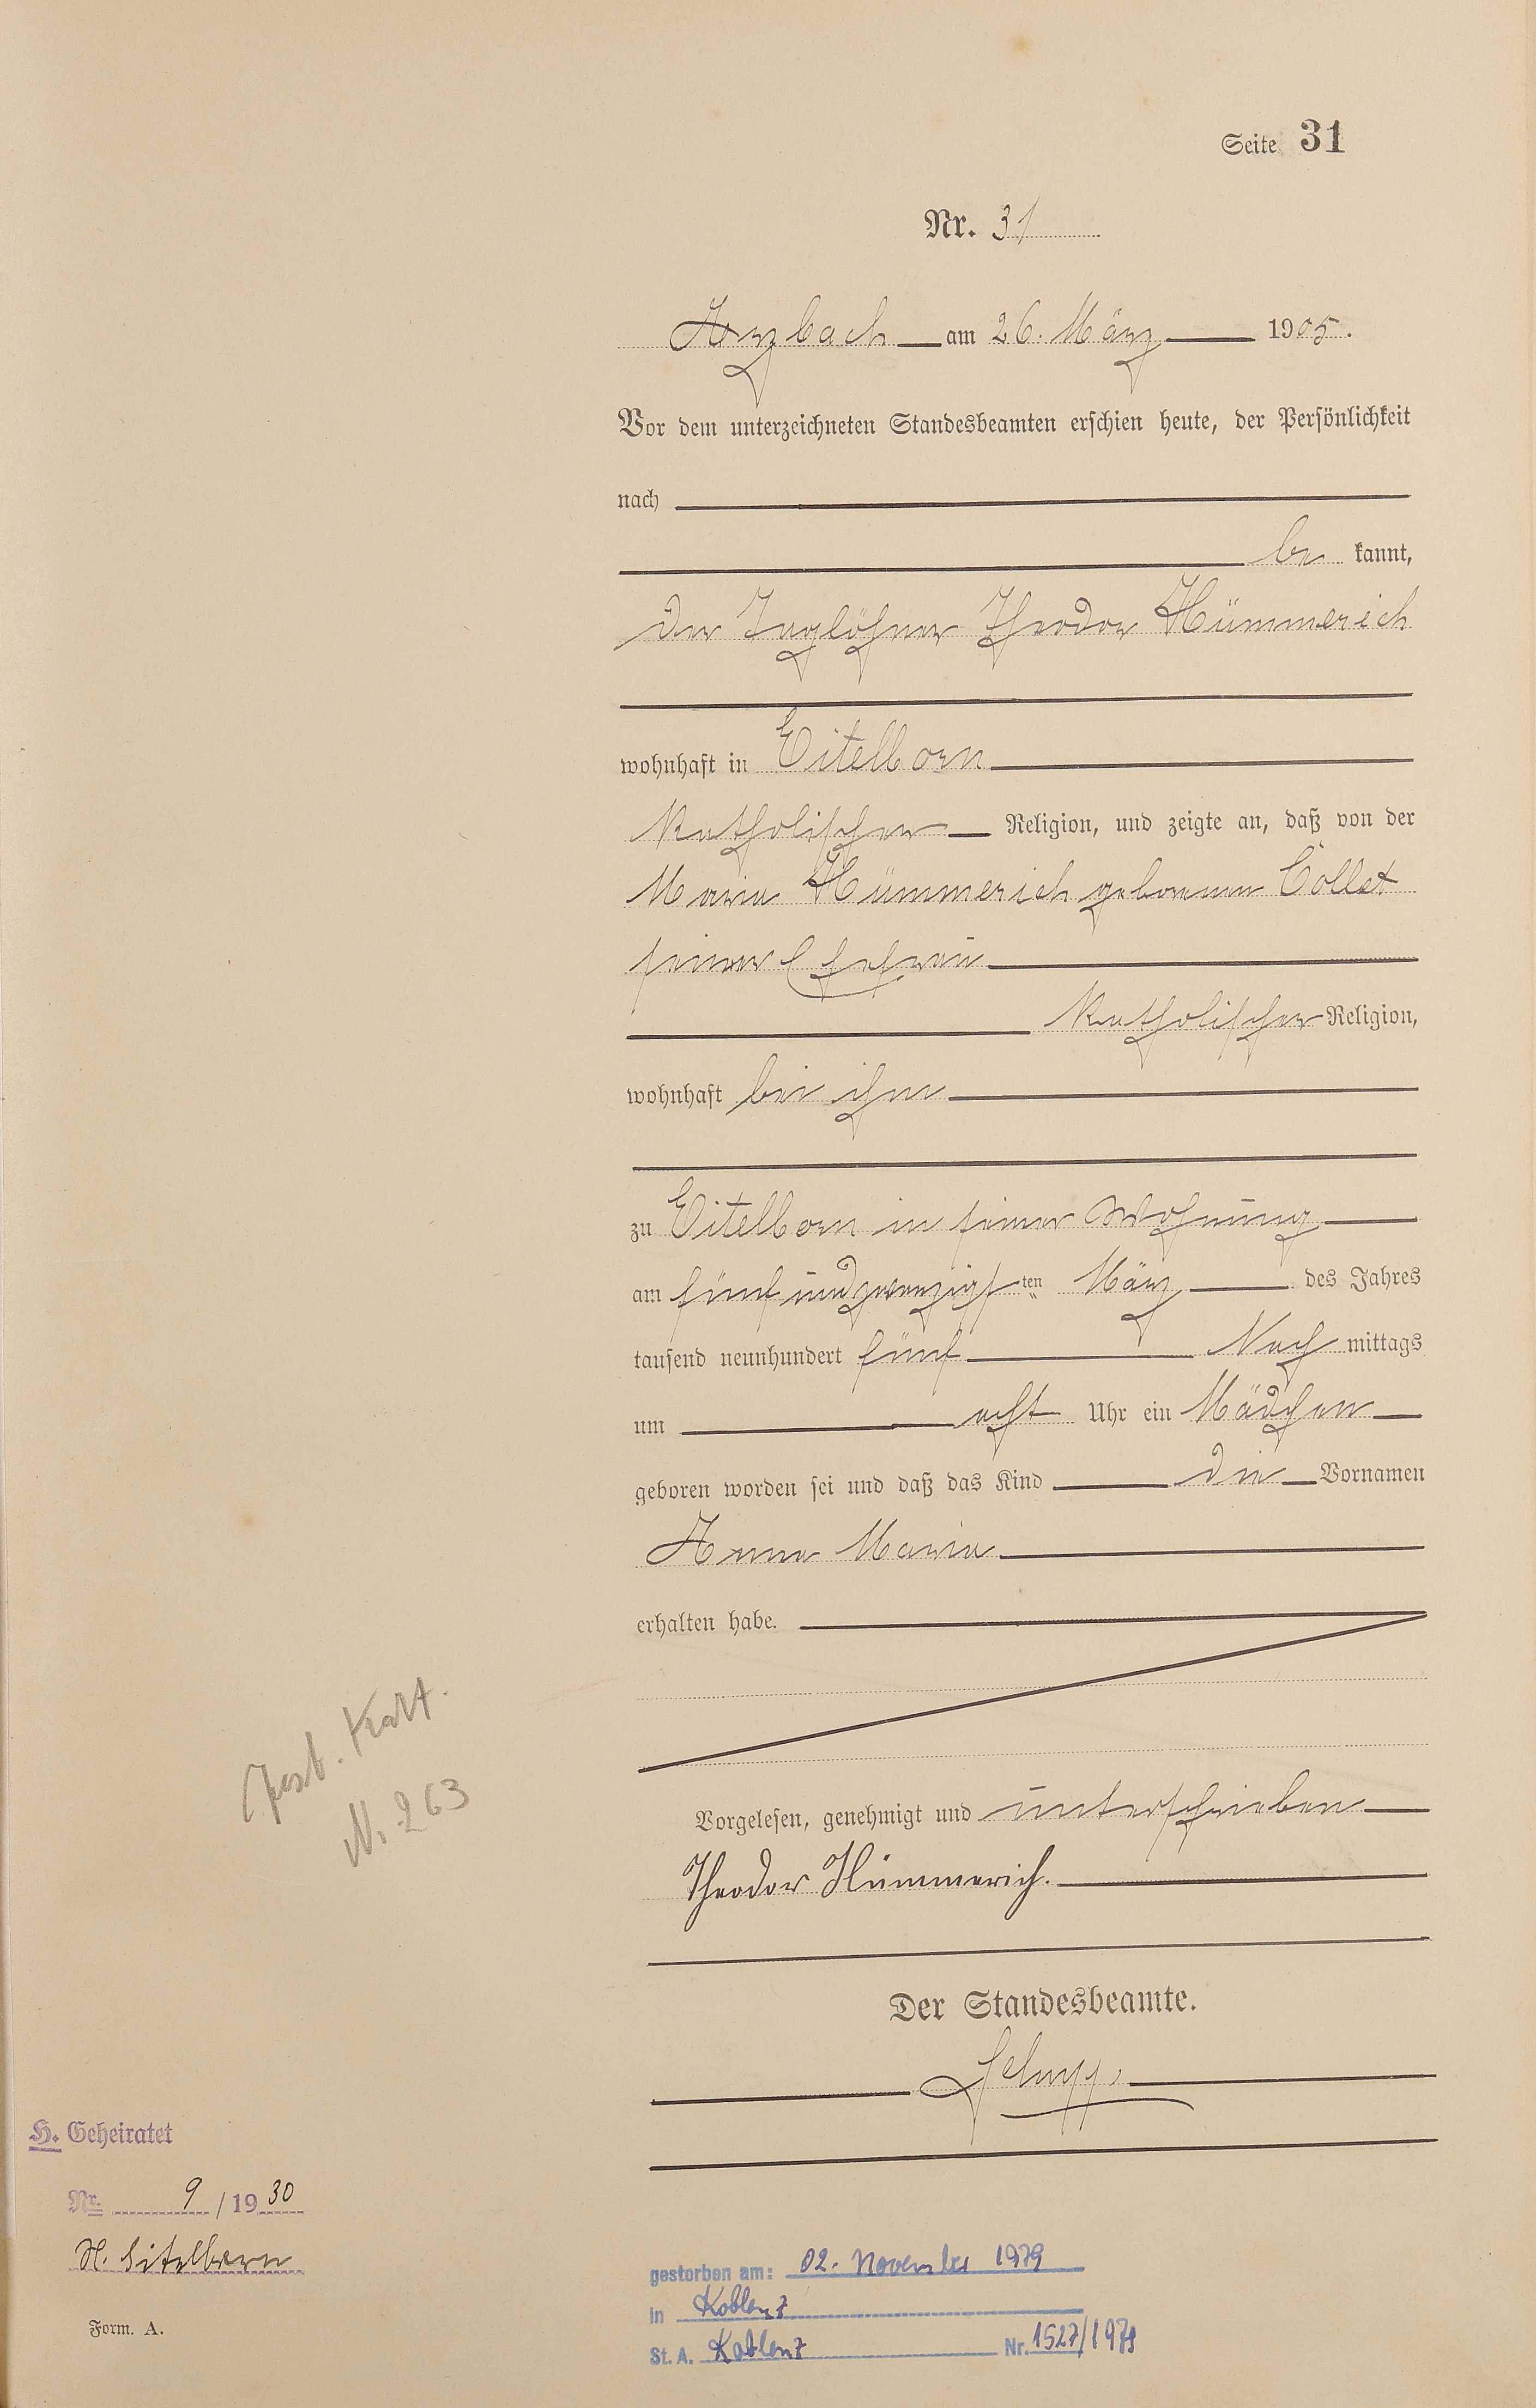 Seite 31
Nr. 31
Arzbach am 26. März 1905.
Vor dem unterzeichneten Standesbeamten erschien heute, der Persönlichkeit
nach
be kannt,
der Taglöhner Theodor Hümmerich
wohnhaft in Eitelborn
katholischer Religion, und zeigte an, daß von der
Maria Hümmerich geborenen Collet
seiner Ehefrau
katholischer Religion,
wohnhaft bei ihm
zu Eitelborn in seiner Wohnung
am fünfundzwanzigsten März des Jahres
tausend neunhundert fünf Nach mittags
um acht Uhr ein Mädchen
geboren worden sei und daß das Kind die Vornamen
Anna Maria
erhalten habe.
Vorgelesen, genehmigt und unterschrieben
Theodor Hümmerich.
Der Standesbeamte.
Gest. Kart.
N. 263
H. Geheiratet
Nr. 9 / 19 30
St. Eitelborn
Form. A.
gestorben am: 02. November 1979
in Koblenz
St. A. Koblenz Nr. 1527/1979